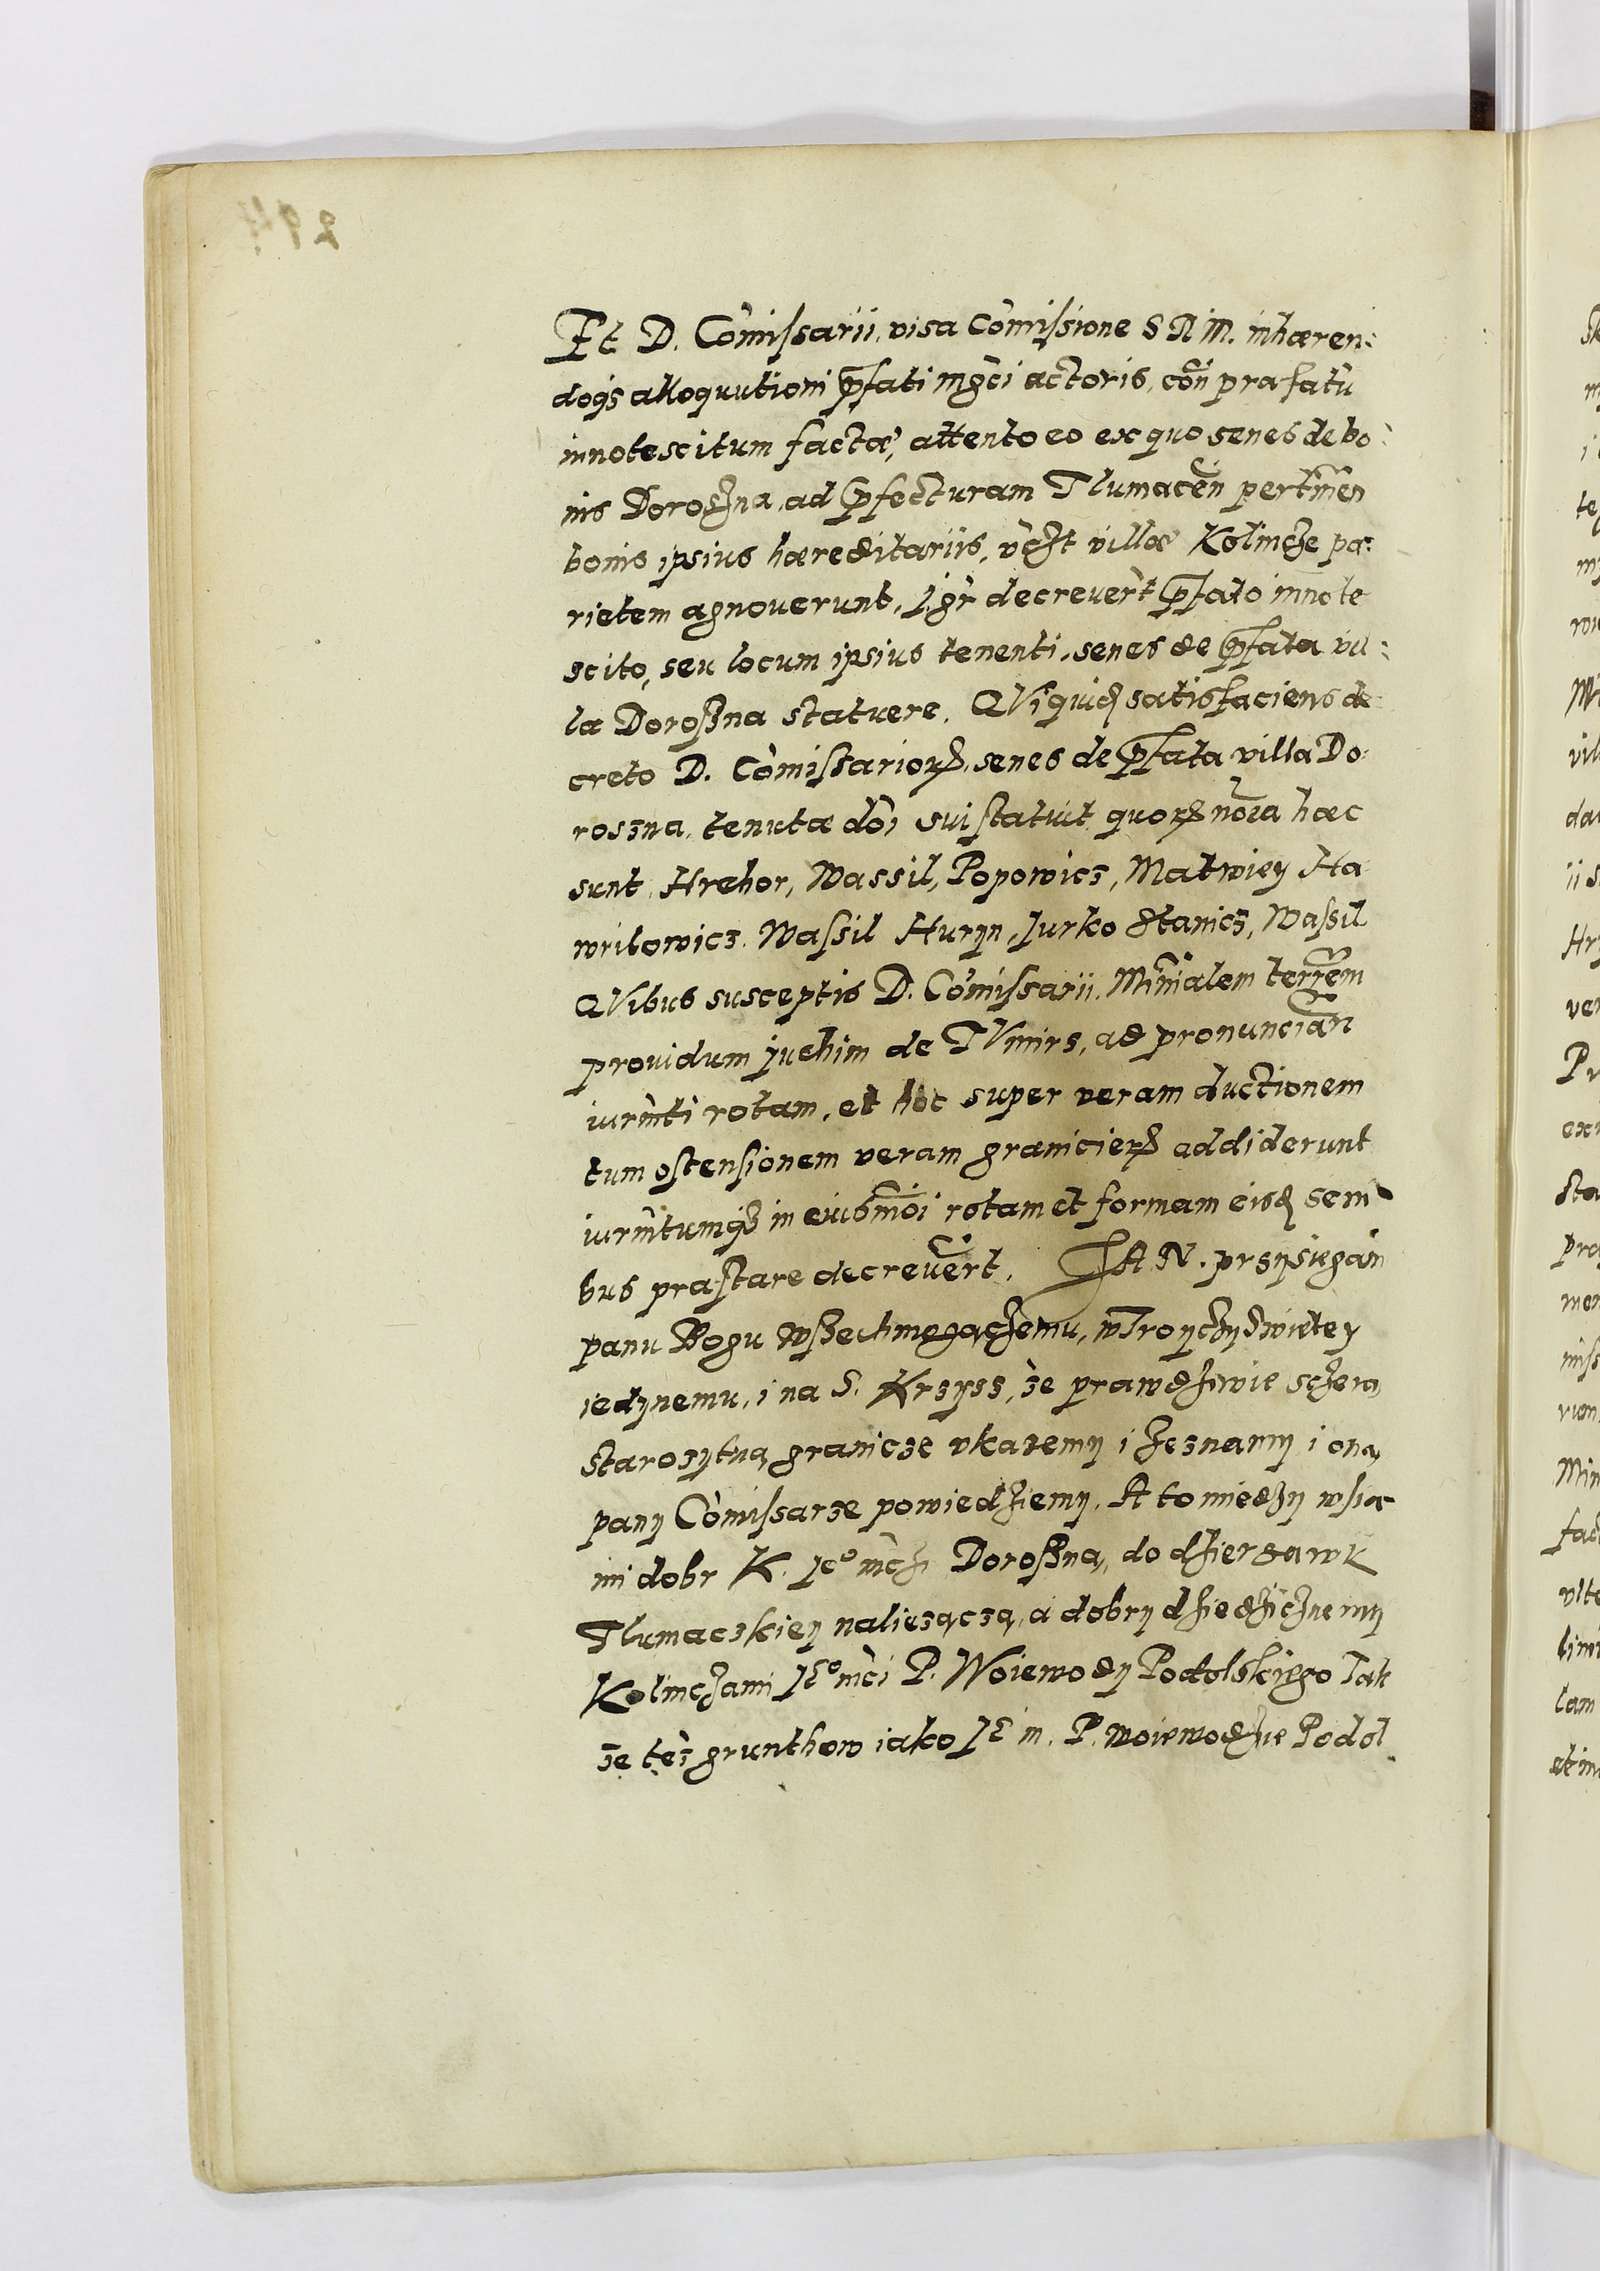 Et D. Comissarii, visa Comissione S R M. inhæren:
doqs alloquutioni pfati mgci actoris, con prafatu
innotescitum factæ, attento eo ex quo senes de bo:
nis Doroszna, ad pfecturam Tlumacen pertinen
bonis ipsius hæreditariis, vczt villæ Kolincze pa:
rietem agnoverunt, Igr decreverut pfato innote
scito, seu locum ipsius tenenti, senes de pfata vil:
la Doroszna statuere. QVi quid satisfaciens de
creto D. Comissarioru, senes de pfata villa Do:
roszna, tenutæ doi sui statuit quoru noia hæc
sunt, Hrehor, Wassil, Popowicz, Matwiey Ha
wrilowicz, Wassil Huryn, Jurko Stanicz, Wassil
QVibus susceptis D. Comissarii, Minialem terrem
prouidum juchim de TVmirs, ad pronuncian
iurmti rotam, et hoc super veram ductionem
tum ostensionem veram granicieru addiderunt
iurmtumqz in eiusmoi rotam et formam eisd seni
bus præstare decreverut. JA N. przysiegam
panu Bogu wszechmogączemu, w Troyczy Swiętey
iedynemu, i na S. Krzyss, że prawdziwie sczerą
starozytną granicze vkazemy i zeznamy i oną
pany Comissarze powiedziemy, A to miedzy wsia
mi dobr K. Je⁰ mczi Doroszną, do dzierzawk
Tlumaczkiey naliezączą, a dobry dziedzicznemy
Kolinczami Je⁰ mci P. Woiewody Podolskiego Tak
ze tes grunthow iako Je m. P. woiewodzie Podol